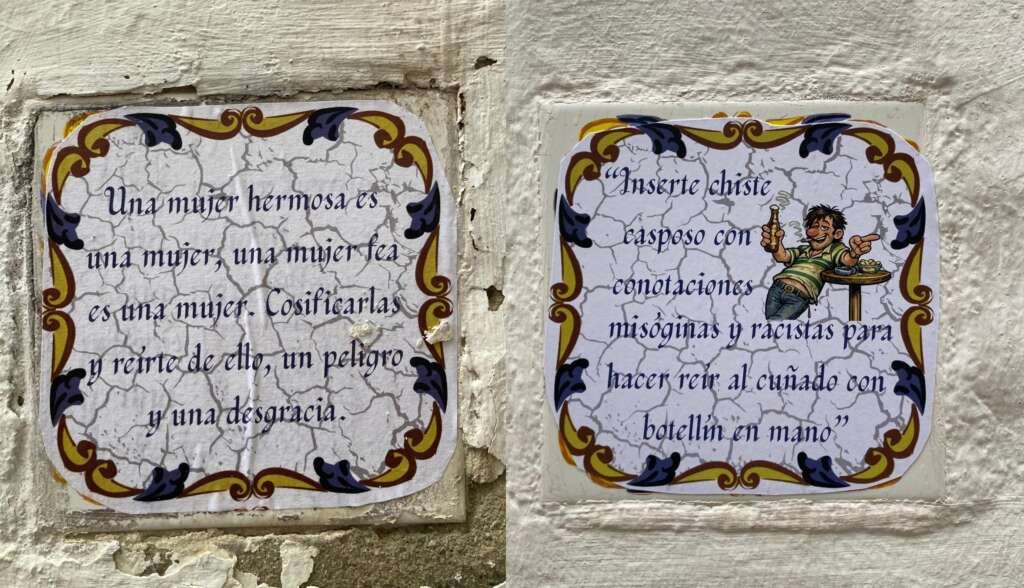 Una mujer hermosa es
una mujer, una mujer fea
es una mujer. Cosificarlas
y reírte de ello, un peligro
y una desgracia.
"Inserte chiste
casposo con
conotaciones
misóginas y racistas para
hacer reír al cuñado con
botellín en mano"